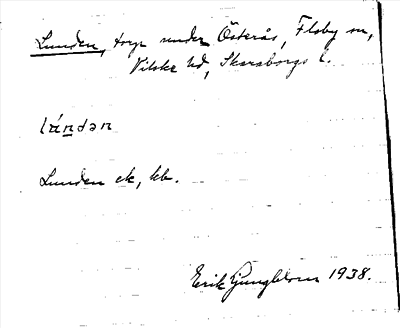 Lunden, torp under Österås, Floby sn,
Vilske hd, Skaraborgs l.
lándan
Lunden ek, kb.
Erik Ljungblom 1938.